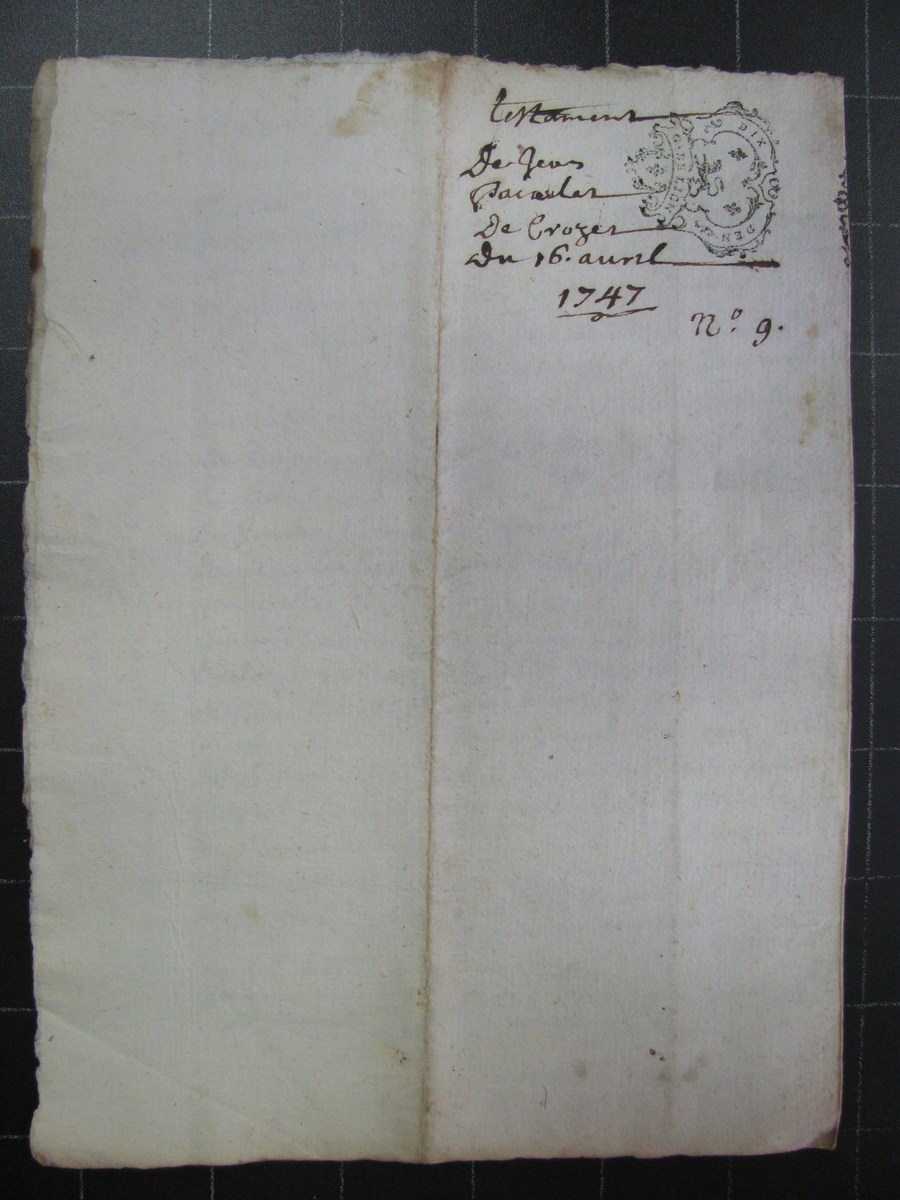 testament
De Jean
Pacalet
De Crozet
Du 16. avril
1747
N.o 9.
DIX
DEN